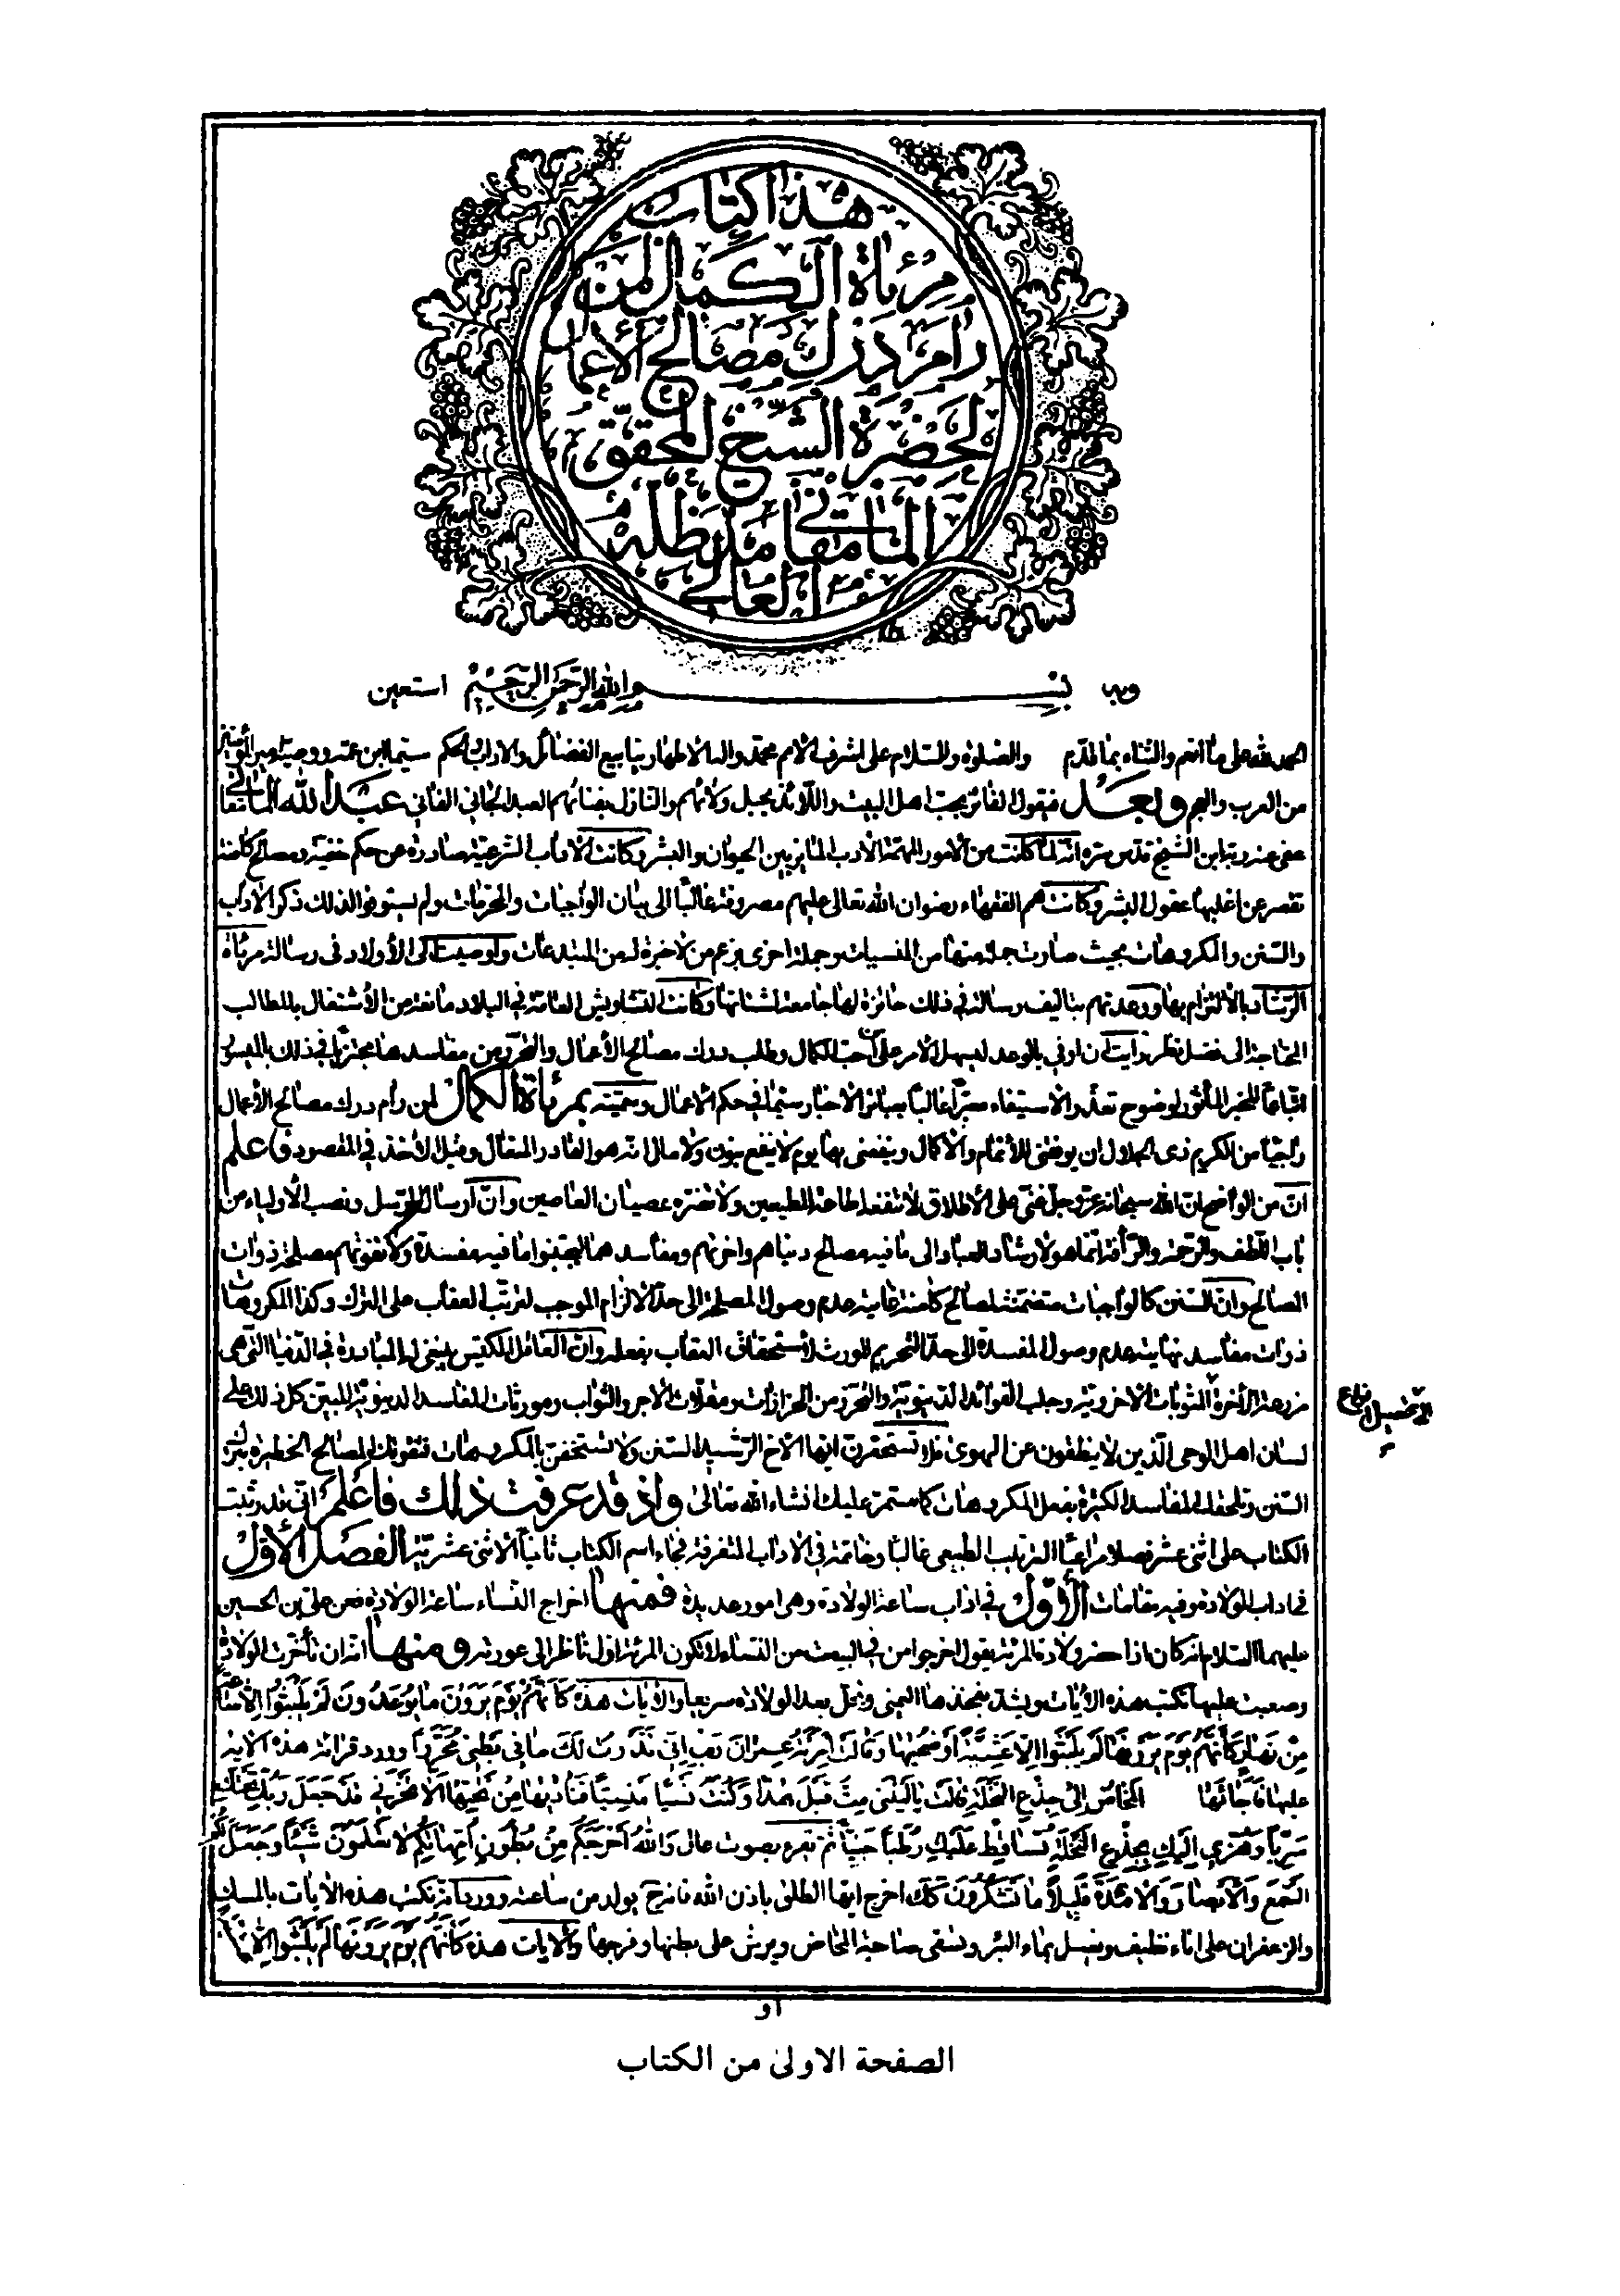 هذا كتاب
مرءاة الكمال لمن
رام درك مصالح الأعمال
لحضرة الشيخ المحقق
المامقاني مد ظله
العالي
وبه بسم الله الرحمن الرحيم استعين
الحمد لله على ما انعم والثناء بما قدم والصلوة والسلام على اشرف الامم محمد واله الاطهار ينابيع الفضائل والاداب والحكم سيما ابن عمه ووصيه امير المؤمنين
من العرب والعجم وبعد فيقول الفائز بحب اهل البيت واللائذ بحبل ولائهم والنازل بفنائهم العبد الجاني الفاني عبد الله المامقاني
عفى عنه ربه ابن الشيخ قدس سره انه لما كانت من الأمور المهمة الأدب المايز بين الحيوان والبشر وكانت الاداب الشرعية صادرة عن حكم خفية ومصالح كامنة
تقصر عن اغلبها عقول البشر وكانت همم الفقهاء رضوان الله تعالى عليهم مصروفة غالبا الى بيان الواجبات والمحرمات ولم يستوفوا لذلك ذكر الاداب
والسنن والمكروهات بحيث صارت جملة منها من المنسيات وجملة اخرى بزعم من لا خبرة له من المبتدعات واوصيت الى الأولاد في رسالة مرءاة
الرشاد بالالتزام بها ووعدتهم بتاليف رسالة في ذلك حائزة لها جامعة لشتاتها وكانت التشاويش العامة في البلاد مانعة من الأشتغال بالمطالب
المحتاجة الى فضل نظر رأيت ان اوفي بالوعد ليسهل الامر على احب الكمال وطلب درك مصالح الأعمال والتحرز من مفاسدها مجتزيا في ذلك بالميسور
اتباعا للخبر المأثور لوضوح تعذر الاستيفاء معبرا غالبا بعبائر الاخبار سيما في حكم الاعمال وسميته بمرءاة الكمال لمن رام درك مصالح الأعمال
راجيا من الكريم ذى الجلال ان يوفقنى للأتمام والأكمال وينفعنى بها يوم لا ينفع بنون ولا مال انه هو القادر المتعال وقبل الاخذ في المقصود فاعلم
ان من الواضح ان الله سبحانه عز وجل غنى على الأطلاق لا تنفعه اطاعة المطيعين ولا تضره عصيان العاصين وان ارسال الرسل ونصب الأولياء من
باب اللطف والرحمة والرأفة انما هو لارشاد العباد الى ما فيه مصالح دنياهم واخرتهم ومفاسدهما ليجتنبوا ما فيه مفسدة ولا تفوتهم مصلحة ذوات
المصالح وان السنن كالواجبات متضمنة لمصالح كامنة غاية عدم وصول المصلحة الى حد الالزام الموجب لترتب العقاب على الترك وكذا المكروهات
ذوات مفاسد نهايته عدم وصول المفسدة الى حد التحريم المورث لاستحقاق العقاب بفعله وان العاقل الكيس ينبغي له المبادرة في الدنيا التى هى
مزرعة الأخرة المثوبات الأخروية وجلب الفوائد الدنيوية والتحرز من الحزازات ومقللات الأجر والثواب ومورثات المفاسد الدنيوية المبين كل ذلك على
لسان اهل الوحى الذين لا ينطقون عن الهوى فلا تستحقرن ايها الأخ الرشيد السنن ولا تستخفن بالمكروهات فتفوتك المصالح الخطيرة بترك
السنن وتلحقك المفاسد الكثيرة بفعل المكروهات كما ستمر عليك انشاء الله تعالى واذ قد عرفت ذلك فاعلم انى قد رتبت
الكتاب على اثنى عشر فصلا مراعيا الترتيب الطبيعى غالبا وخاتمة في الاداب المتفرقة فجاء اسم الكتاب ثانيا الاثنى عشرية الفصل الأول
في اداب الولادة وفيه مقامات الأول في اداب ساعة الولادة وهى امور عديدة فمنها اخراج النساء ساعة الولادة فعن على بن الحسين
عليهما السلام انه كان اذا حضر ولادة المرئة يقول اخرجوا من في البيت من النساء لا تكون المرئة اول ناظر الى عورته ومنها انه ان تأخرت الولادة
وصعبت عليها تكتب هذه الايات ويشد بفخذها اليمنى وتحل بعد الولادة سريعا والايات هذه كَاَنَّهُمْ يَوْمَ يَرَوْنَ مَا يُوعَدُونَ لَمْ يَلْبَثُوا اِلَّا سَاعَةً
مِنْ نَهَارٍ كَاَنَّهُمْ يَوْمَ يَرَوْنَهَا لَمْ يَلْبَثُوا اِلَّا عَشِيَّةً اَوْ ضُحَيهَا وقالت امرئة عمران رب انى نذرت لك ما في بطنى محررا وورد قرائة هذه الاية
عليها فاجائها المخاض الى جذع النخلة قالت يا ليتنى مت قبل هذا وكنت نسيا منسيا فناديها من تحتها الا تحزنى قد جعل ربك تحتك
سريا وهزى اليك بجذع النخلة تساقط عليك رطبا جنيا ثم تقرء بصوت عال والله اخرجكم من بطون امهاتكم لا تعلمون شيئا وجعل لكم
السمع والابصار والافئدة قليلا ما تشكرون كك اخرج ايها الطلق باذن الله فانه يولد من ساعته وورد انه تكتب هذه الايات بالمسك
والزعفران على اناء نظيف ويغسل بماء البئر وتسقى صاحبة المخاض ويرش على بطنها وفرجها والايات هذه كَاَنَّهُمْ يَوْمَ يَرَوْنَهَا لَمْ يَلْبَثُوا اِلَّا
او
الصفحة الاولى من الكتاب